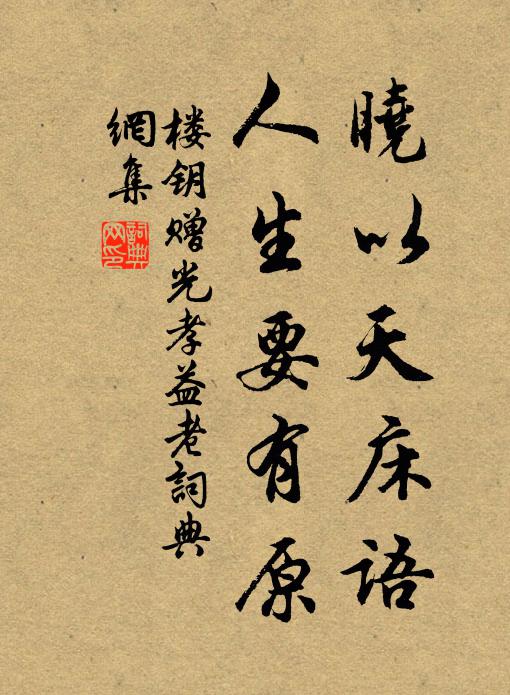 曉以天床語
人生要有原
楼钥赠光孝益老詞典
網集
詞典
网印